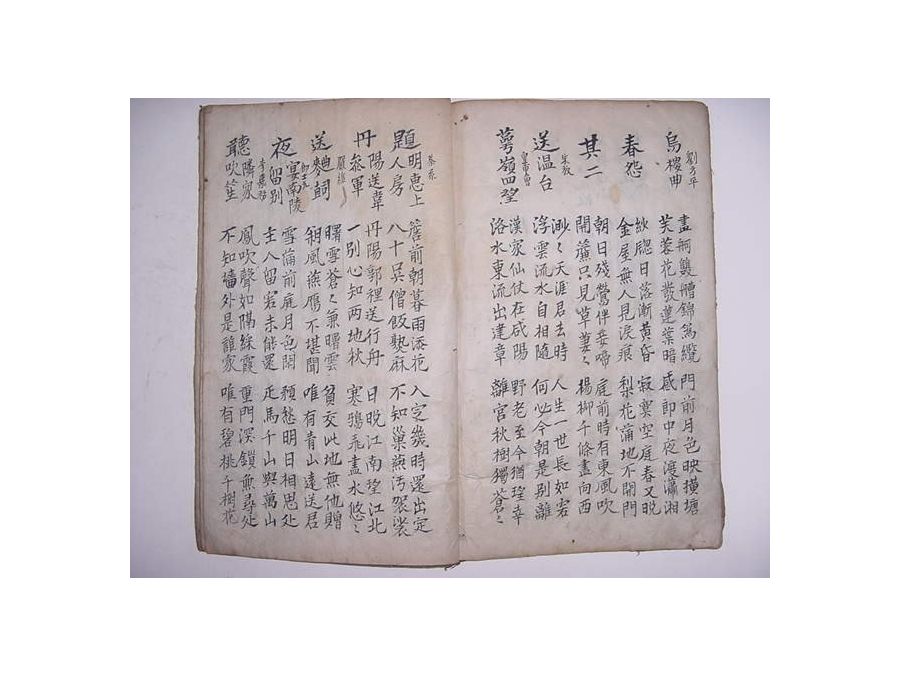 烏棲曲
劉方平
畫舸雙艚錦為纜 門前月色映橫塘
芙蓉花發蓮葉暗 感郎中夜渡瀟湘
春怨
紗窓日落漸黃昏 寂寞空庭春又晚
金屋無人見淚痕 梨花滿地不開門
其二
朝日殘鶯伴妾啼 庭前時有東風吹
開簾只見草萋〻 楊柳千條盡向西
送溫台
朱放
渺〻天涯君去時 人生一世長如客
浮雲流水自相隨 何必今朝是別離
萼嶺四望
皇甫曾
漢家仙仗在咸陽 野老至今猶望幸
洛水東流出建章 離宮秋樹獨蒼〻
題明惠上人房
秦系
簷前朝暮雨添花 入定幾時還出定
八十吳僧飯熟麻 不知巢燕汚袈裟
丹陽送韋參軍
嚴維
丹陽郭裡送行舟 日晚江南望江北
一別心知两地秋 寒鴉飛盡水悠〻
送麴
曙雪蒼〻兼曙雲 貧交此地無他贈
朔風燕鴈不堪聞 唯有青山遠送君
夜宴南陵留別
雪滿前庭月色閑 預愁明日相思处
主人留客未能還 疋馬千山與萬山
聽隣家吹笙
鳳吹聲如隔綵霞 重門深鎖無尋处
不知墻外是誰家 唯有碧桃千樹花